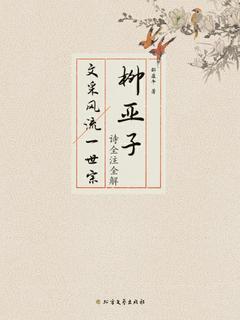 柳亚子
诗全注全解
文采风流一世宗
著
北方文艺出版社